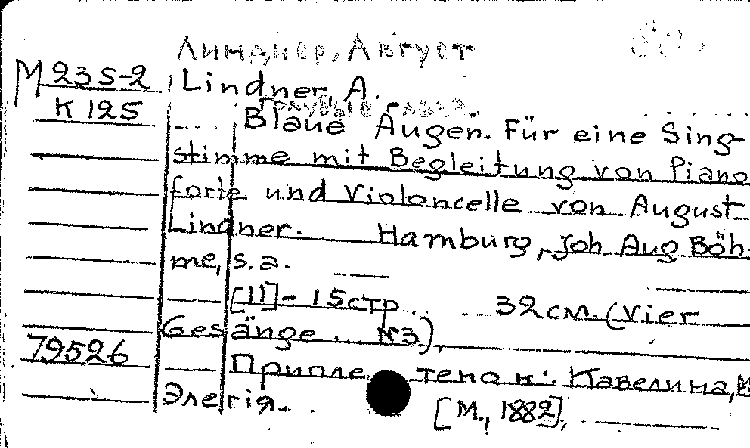 Линднер, Август
М 235-2 Lindner A.
К 125 Голубые глаза.
Blaue Augen. Für eine Sing-
stimme mit Begleitung von Piano
forte und Violoncelle von August
Lindner. Hamburg, Joh. Aug Böh-
me, s.a.
[11]-15 стр. 32 см. (Vier
Gesänge. N3).
79526 Приплетено к: Кавелина,
Элегiя. [М., 1882],